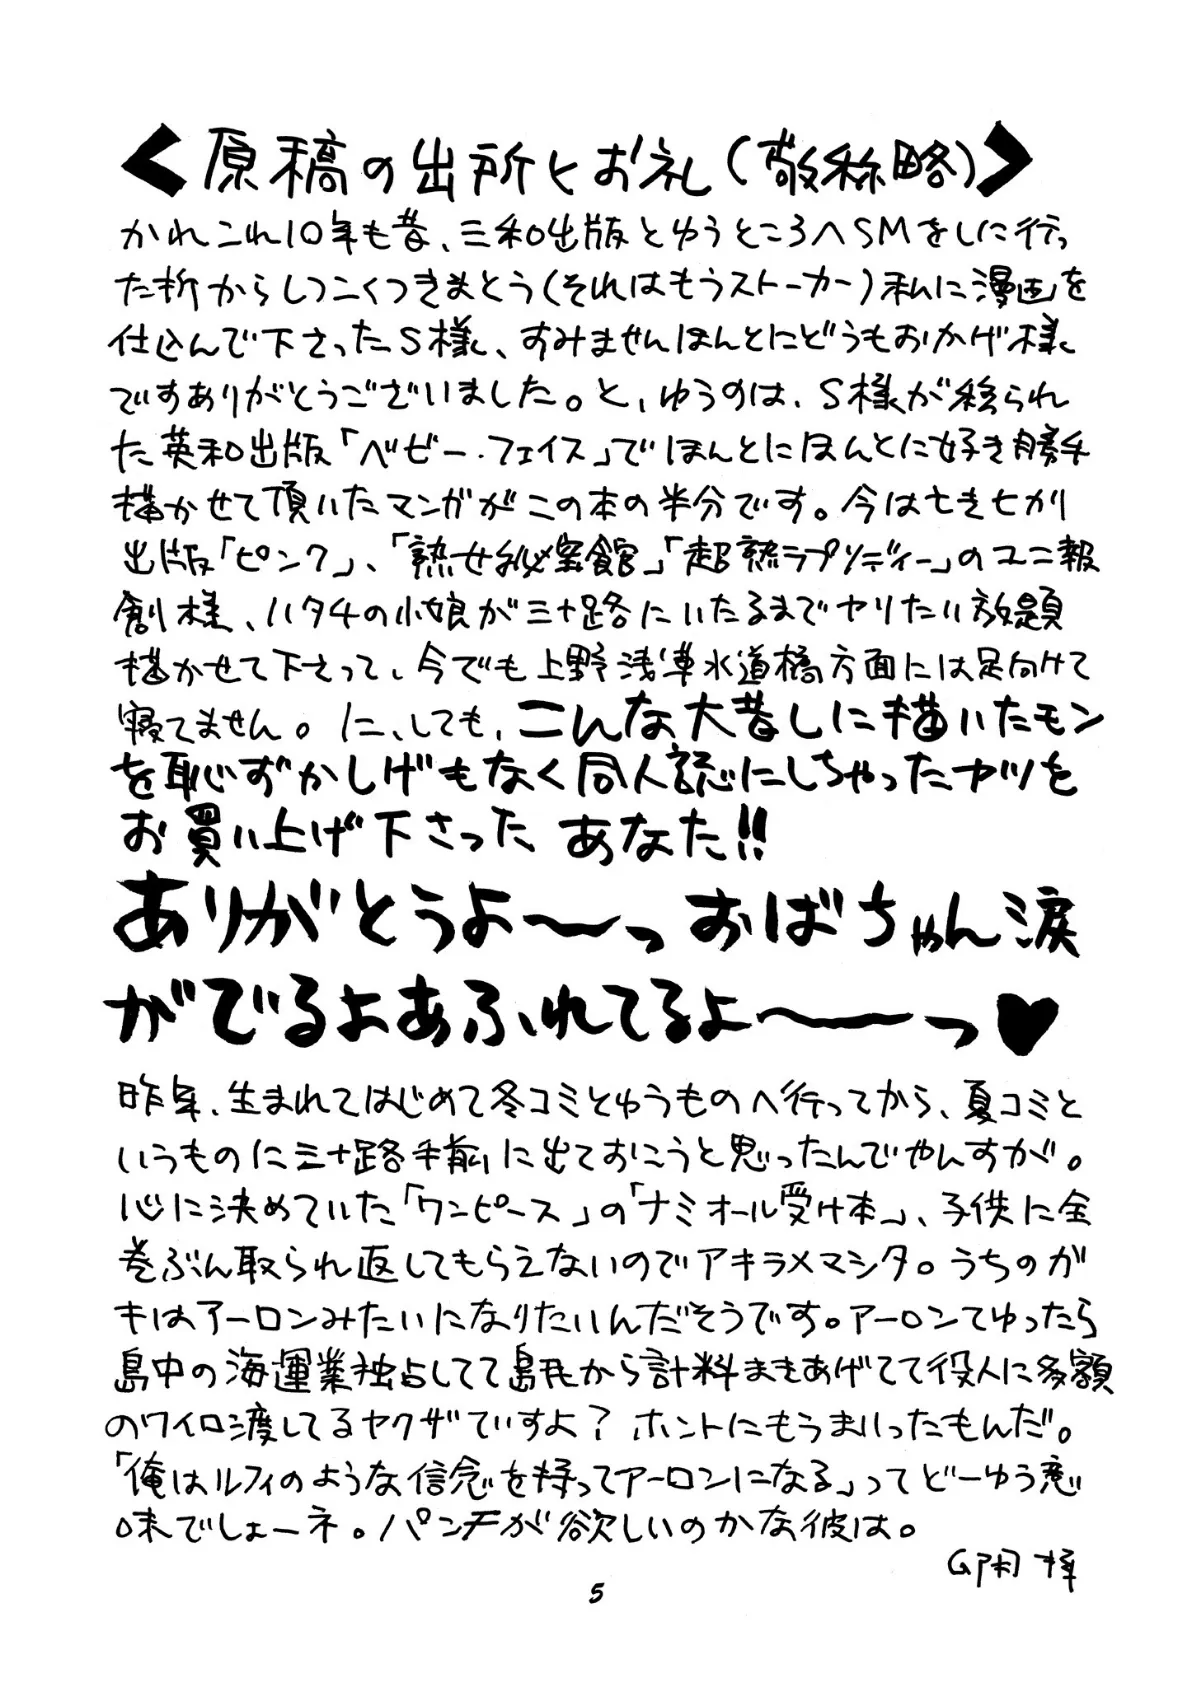 ＜原稿の出所とお礼(敬称略)＞
かれこれ10年も昔、三和出版とゆうところへSMをしに行っ
た折からしつこくつきまとう(それはもうストーカー)私に漫画を
仕込んで下さったS様、すみませんほんとにどうもおかげ様
ですありがとうございました。と、ゆうのは、S様が移られ
た英和出版「ベビー・フェイス」でほんとにほんとに好き勝手
描かせて頂いたマンガがこの本の半分です。今は亡き七かり
出版「ピンク」、「熟女秘宝館」「超熟ラプソディー」のユニ報
創様、ハタチの小娘が三十路にいたるまでヤりたい放題
描かせて下さって、今でも上野浅草水道橋方面には足向けて
寝てません。に、しても、こんな大昔しに描いたモン
を恥ずかしげもなく同人誌にしちゃったヤツを
お買い上げ下さった あなた!!
ありがとうよ〜っおばちゃん涙
がでるよあふれてるよ〜〜っ♥
昨年、生まれてはじめて冬コミとゆうものへ行ってから、夏コミと
いうものに三十路手前に出ておこうと思ったんでやんすが。
心に決めていた「ワンピース」の「ナミオール受け本」、子供に全
巻ぶん取られ返してもらえないのでアキラメマシタ。うちのガ
キはアーロンみたいになりたいんだそうです。アーロンてゆったら
島中の海運業独占してて島民から計料まきあげてて役人に多額
のワイロ渡してるヤクザですよ？ ホントにもうまいったもんだ。
「俺はルフィのような信念を持ってアーロンになる」ってどーゆう意
味でしょーネ。パンチが欲しいのかな彼は。
5